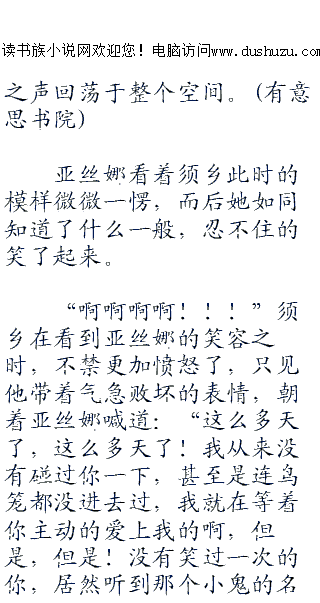 读书族小说网欢迎您！电脑访问www.dushuzu.com
之声回荡于整个空间。(有意
思书院)
亚丝娜看着须乡此时的
模样微微一愣，而后她如同
知道了什么一般，忍不住的
笑了起来。
“啊啊啊啊！！！”须
乡在看到亚丝娜的笑容之
时，不禁更加愤怒了，只见
他带着气急败坏的表情，朝
着亚丝娜喊道：“这么多天
了，这么多天了！我从来没
有碰过你一下，甚至是连鸟
笼都没进去过，我就在等着
你主动的爱上我的啊，但
是，但是！没有笑过一次的
你，居然听到那个小鬼的名